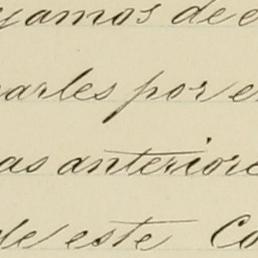 yamos de e
arles por e
as anterior
de este Co